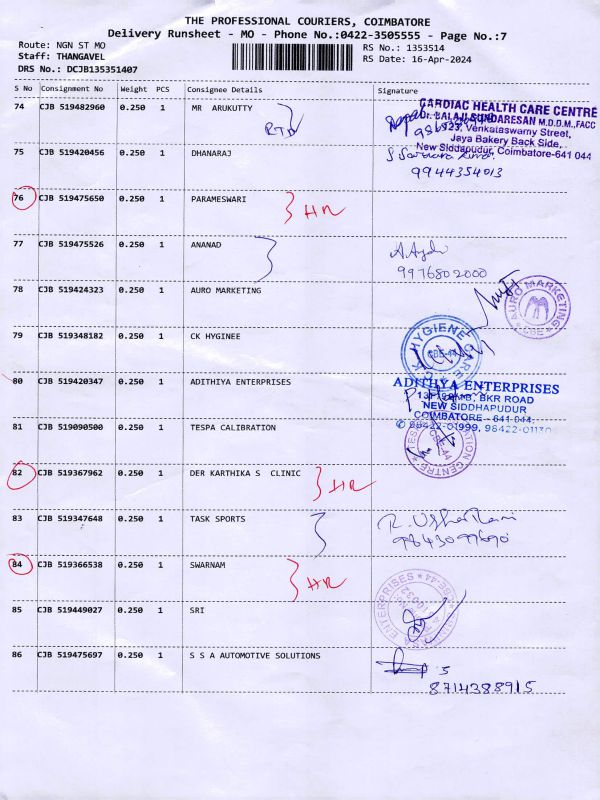 THE PROFESSIONAL COURIERS, COIMBATORE
Delivery Runsheet - MO - Phone No.:0422-3505555 - Page No.:7
Route: NGN ST MO
RS No.: 1353514
Staff: THANGAVEL
RS Date: 16-Apr-2024
DRS No.: DCJB135351407
S No Consignment No Weight PCS Consignee Details Signature
74 CJB 519482960 0.250 1 MR ARUKUTTY
CARDIAC HEALTH CARE CENTRE
Dr. BALAJI SUNDARESAN M.D.D.M,FACC
523, Venkataswamy Street,
Jaya Bakery Back Side,
New Siddapudur, Coimbatore-641 044
75 CJB 519420456 0.250 1 DHANARAJ
9944354013
76 CJB 519475650 0.250 1 PARAMESWARI HR
77 CJB 519475526 0.250 1 ANANAD
9976802000
78 CJB 519424323 0.250 1 AURO MARKETING
AURO MARKETING CBE
79 CJB 519348182 0.250 1 CK HYGINEE
80 CJB 519420347 0.250 1 ADITHIYA ENTERPRISES
ADITHYA ENTERPRISES
BKR ROAD
NEW SIDDHAPUDUR
COIMBATORE - 641 044.
81 CJB 519090500 0.250 1 TESPA CALIBRATION
82 CJB 519367962 0.250 1 DER KARTHIKA S CLINIC HR
83 CJB 519347648 0.250 1 TASK SPORTS
84 CJB 519366538 0.250 1 SWARNAM HR
85 CJB 519449027 0.250 1 SRI
ENTERPRISES
86 CJB 519475697 0.250 1 S S A AUTOMOTIVE SOLUTIONS
8714388915